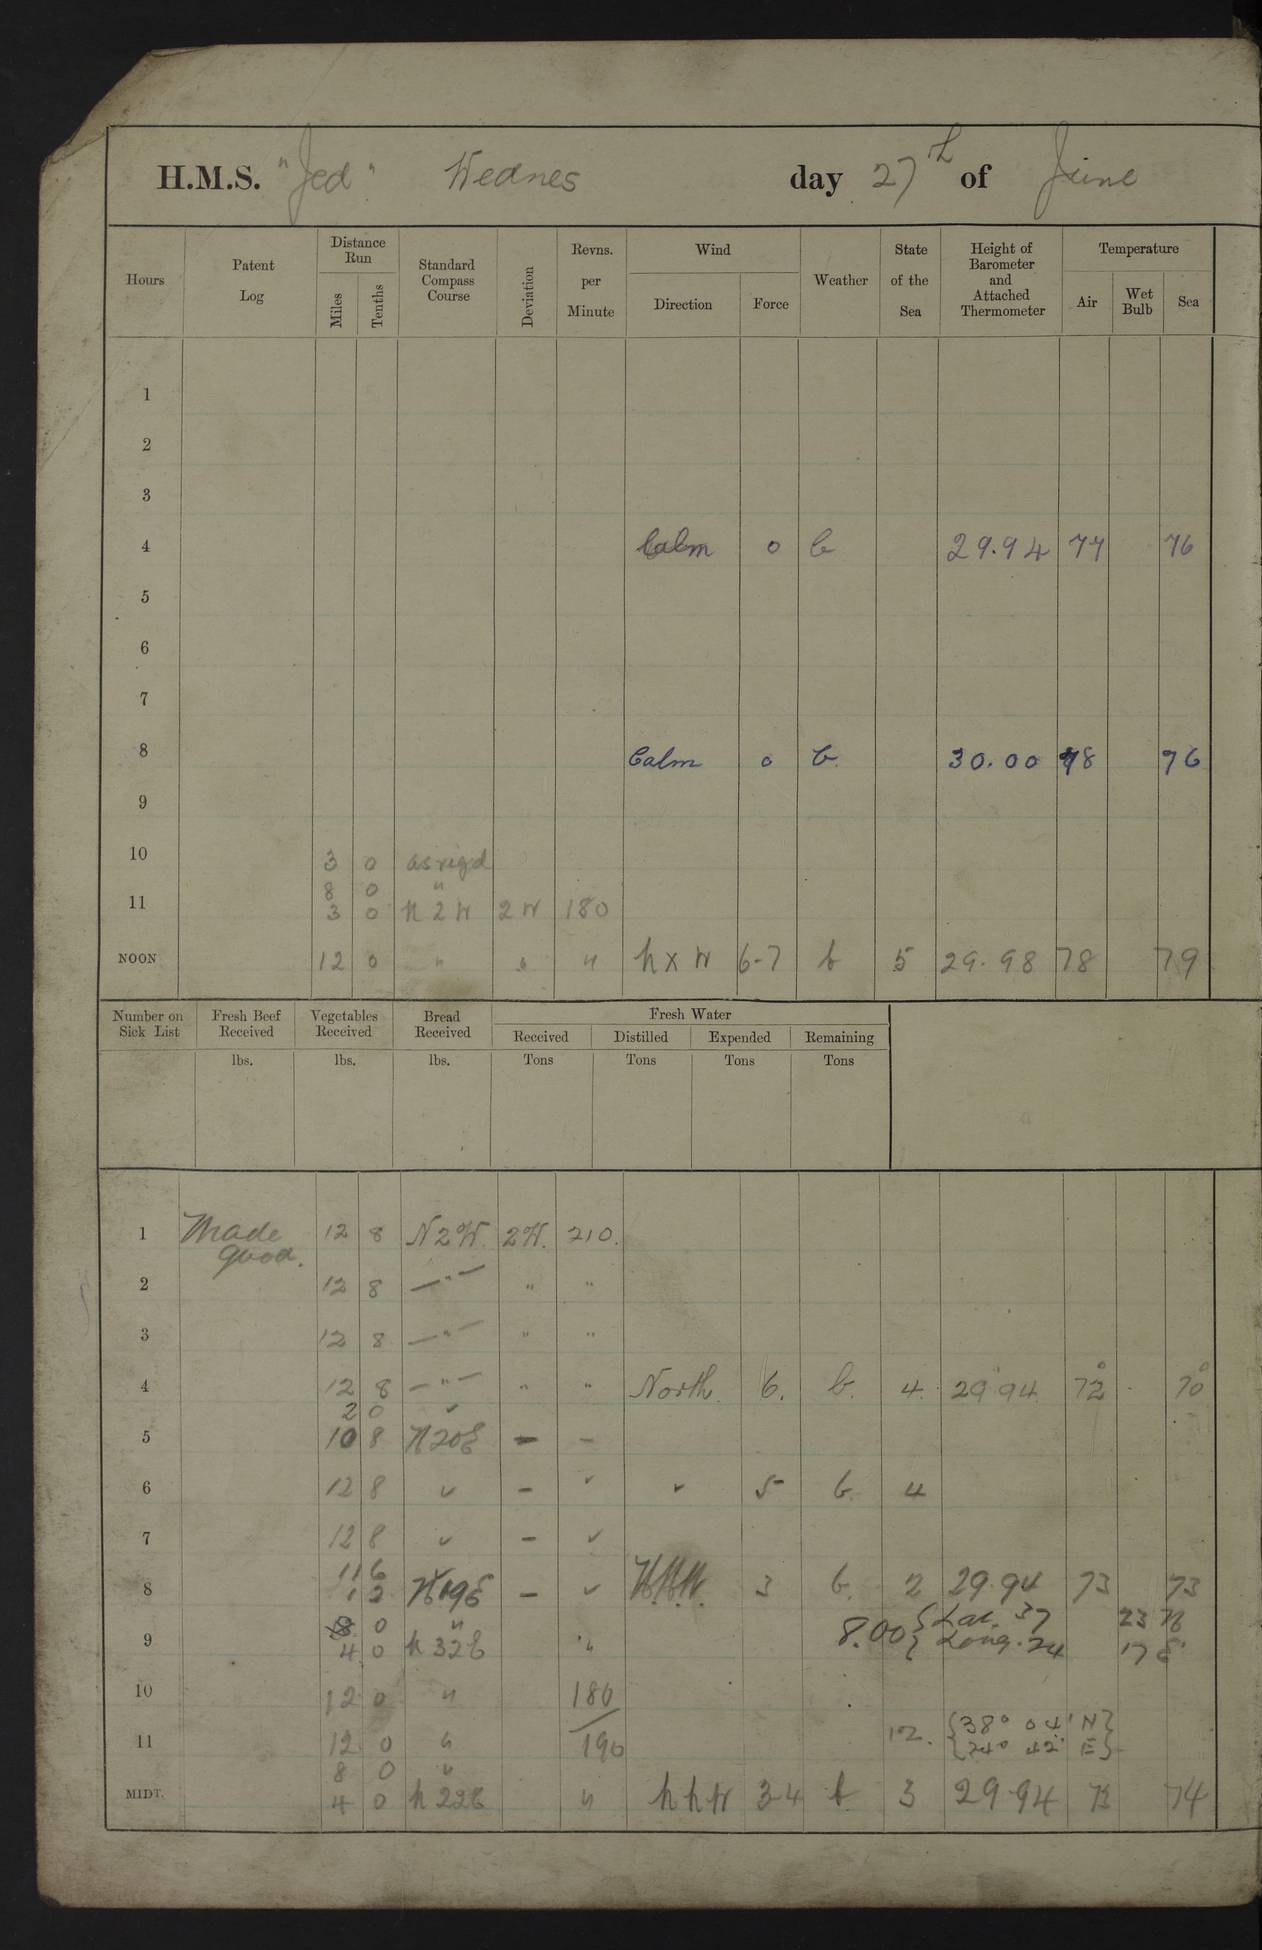 H.M.S. "Jed" Wednes day 27th of June
Hours Patent Log Distance Run Miles Tenths Standard Compass Course Deviation Revns. per Minute Wind Direction Force Weather State of the Sea Height of Barometer and Attached Thermometer Temperature Air Wet Bulb Sea
1
2
3
4 Calm 0 b 29.94 77 76
5
6
7
8 Calm 0 b. 30.00 78 76
9
10 3 0 as reqd
8 0 "
11 3 0 N 2 W 2 W 180
NOON 12 0 " " " N x W 6-7 b 5 29.98 78 79
Number on Sick List Fresh Beef Received Vegetables Received Bread Received Fresh Water
Received Distilled Expended Remaining
lbs. lbs. lbs. Tons Tons Tons Tons
1 Made good. 12 8 N 2 W. 2 W. 210.
2 12 8 —"— " "
3 12 8 —"— " "
4 12 8 —"— " " North 6. b. 4. 29.94 72° 70°
2 0 "
5 10 8 N20E - -
6 12 8 " - " " 5 b. 4
7 12 8 " - "
11 6
8 1 2 N19E - " 3 b. 2 29.94 73 73
8 0 " 8.00 { Lat. 37 23 N
9 4 0 N 32 E " { Long. 24 17 E
10 12 0 " 180
11 12 0 " 190 12. {38° 04' N}
{24° 42' E}
8 0 "
MIDT. 4 0 N 22 E " N N W 3-4 b 3 29.94 74